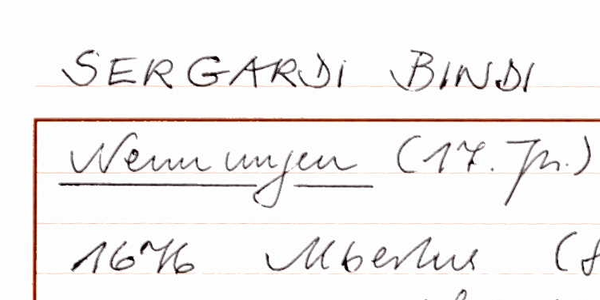 SERGARDI BINDI
Nennungen (17. Jh.)
1676 Ubertus (